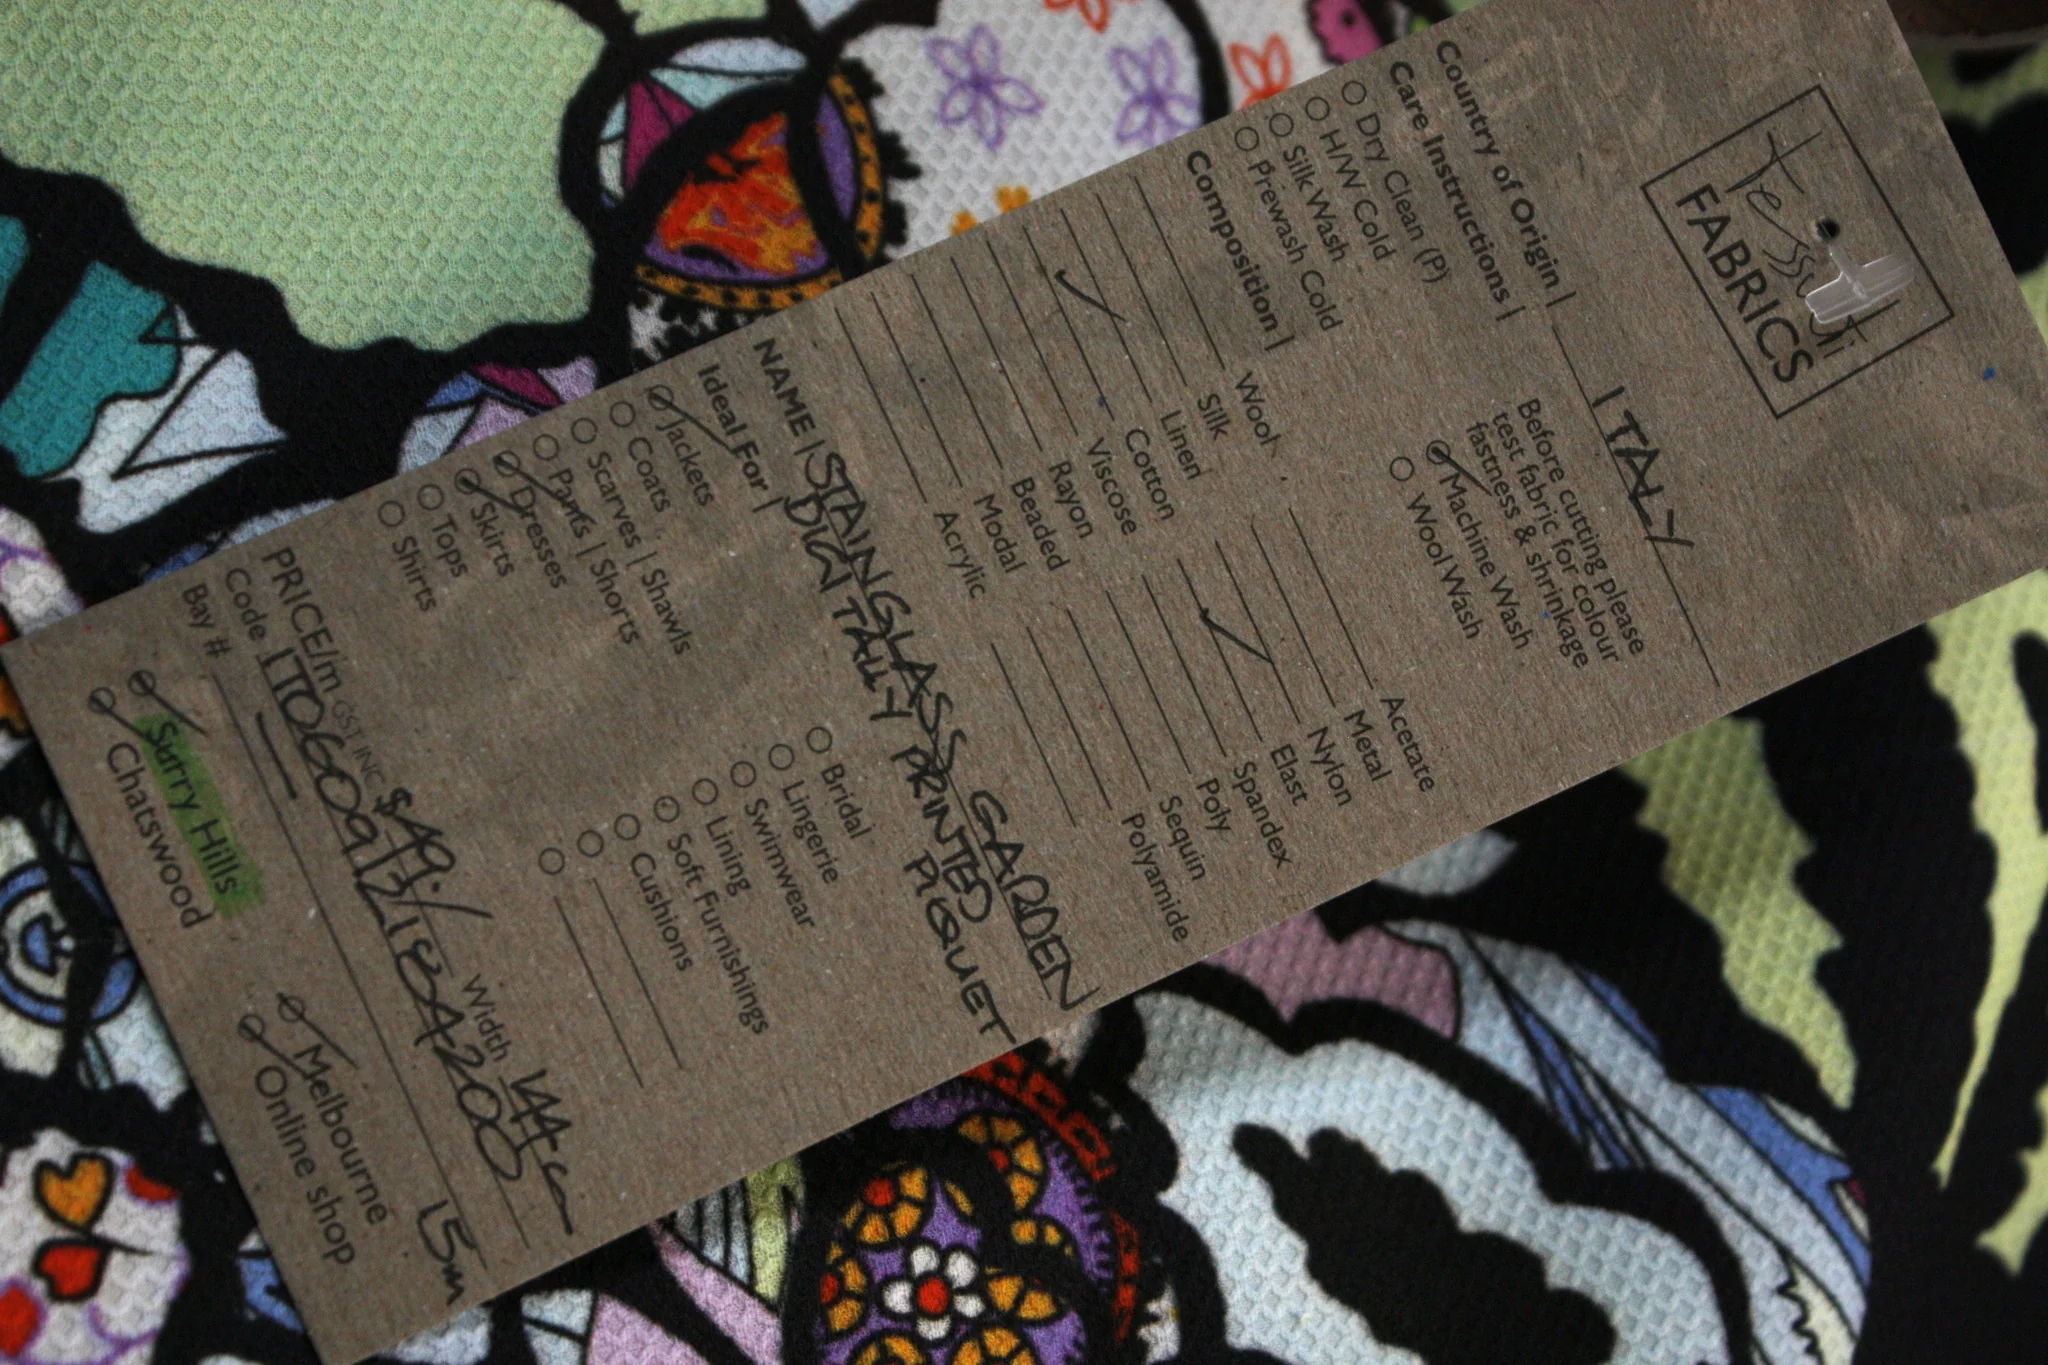 Tessuti
FABRICS
Country of Origin | ITALY
Care Instructions |
Dry Clean (P)
H/W Cold
Silk Wash
Prewash Cold
Before cutting please
test fabric for colour
fastness & shrinkage
Machine Wash
Wool Wash
Composition |
Wool
Silk
Linen
Cotton
Viscose
Rayon
Beaded
Modal
Acrylic
Acetate
Metal
Nylon
Elast
Spandex
Poly
Sequin
Polyamide
NAME | STAINGLASS GARDEN
DIGITALLY PRINTED PIQUET
Ideal For |
Jackets
Coats
Scarves | Shawls
Pants | Shorts
Dresses
Skirts
Tops
Shirts
Bridal
Lingerie
Swimwear
Lining
Soft Furnishings
Cushions
PRICE/m GST INC $49./ Width 144cm
Code
Bay # — 15m
Surry Hills
Chatswood
Melbourne
Online shop